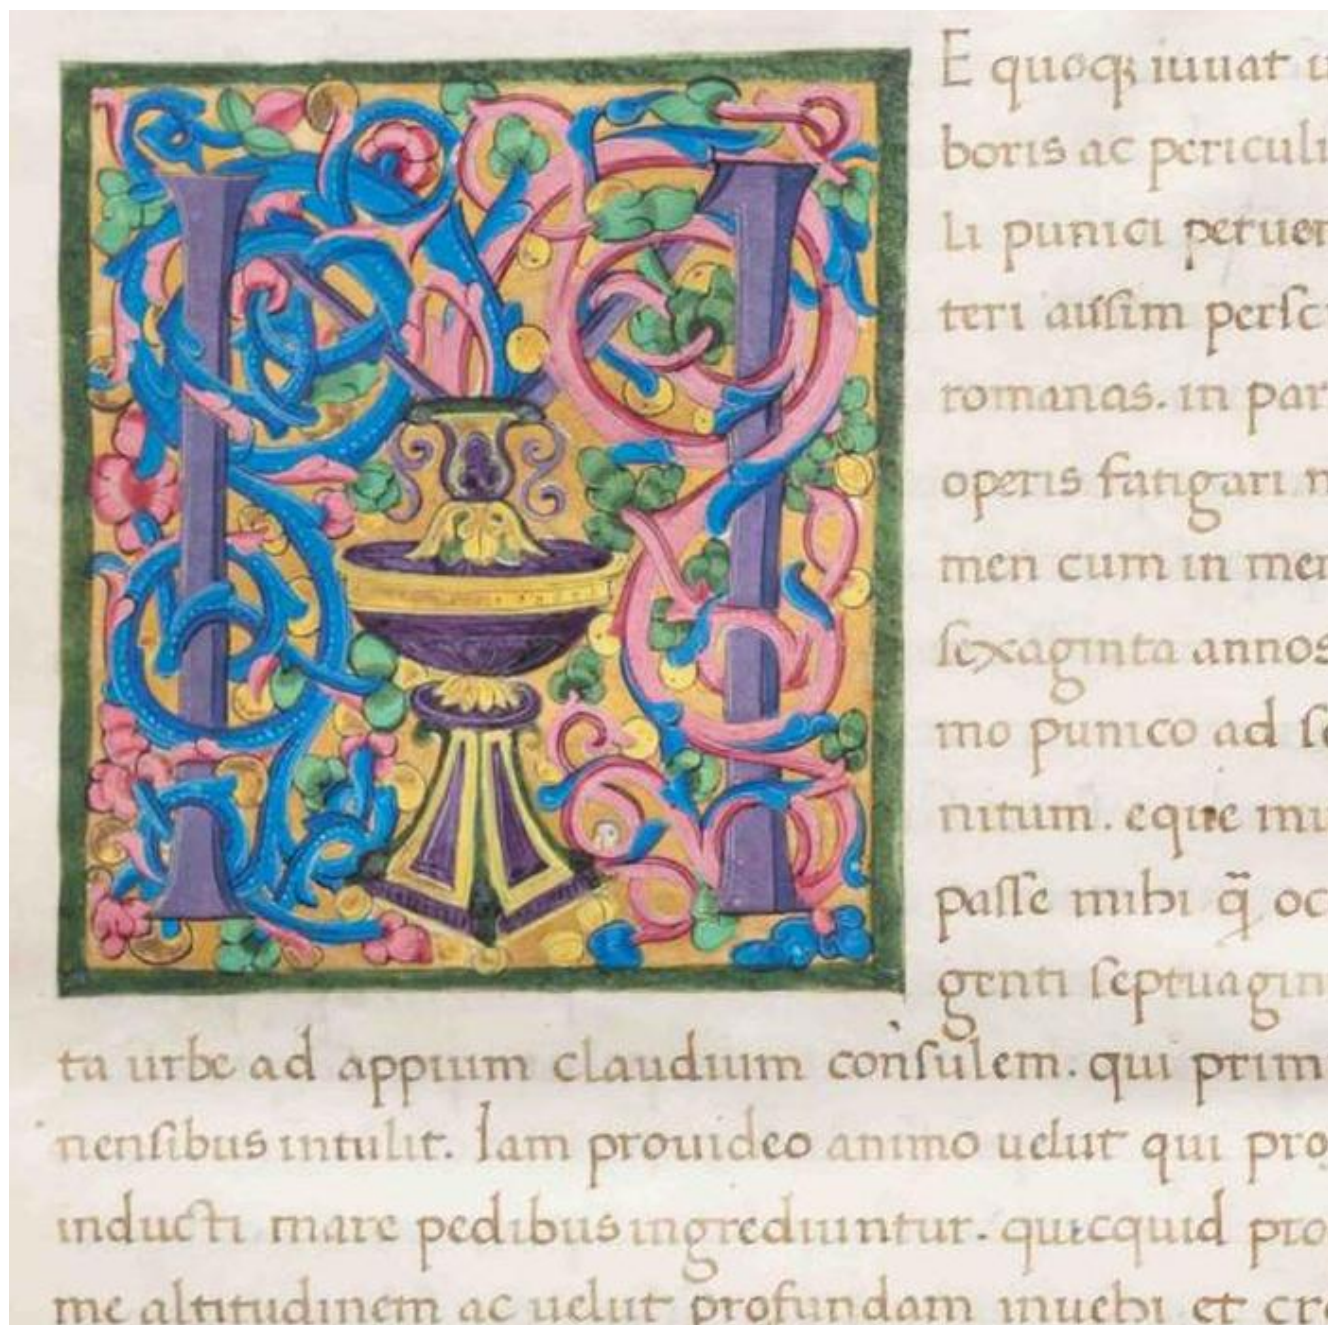 ME quoq; iuuat u
boris ac periculi
li punici peruen
teri ausim perscr
romanas. in par
operis fatigari m
men cum in men
sexaginta annos
mo punico ad se
nitum. eque mu
passe mihi q̃ oc
genti septuagin
ta urbe ad appium claudium consulem. qui prim
nensibus intulit. Iam prouideo animo uelut qui pro
inducti mare pedibus ingrediuntur. quicquid pro
me altitudinem ac uelut profundam inuehi et cre